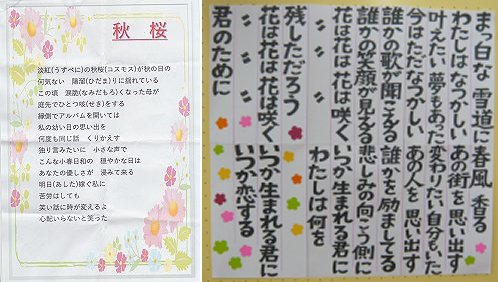 秋桜
淡紅(うすべに)の秋桜(コスモス)が秋の日の
何気ない 陽溜(ひだま)りに揺れている
この頃 涙脆(なみだもろ)くなった母が
庭先でひとつ咳(せき)をする
縁側でアルバムを開いては
私の幼い日の思い出を
何度も同じ話 くりかえす
独り言みたいに 小さな声で
こんな小春日和の 穏やかな日は
あなたの優しさが 浸みて来る
明日(あした)嫁ぐ私に
苦労はしても
笑い話に時が変えるよ
心配いらないと笑った
まっ白な 雪道に春風 香る
わたしはなつかしい あの街を思い出す
叶えたい 夢もあった 変わりたい自分もいた
今はただなつかしい あの人を 思い出す
誰かの歌が聞こえる 誰かを 励ましてる
誰かの笑顔が見える 悲しみの向こう側に
花は花は花は咲く いつか生まれる君に
花は花は花は咲く わたしは何を
残しただろう
花は花は花は咲く いつか生まれる君に
花は花は花は咲く いつか恋する
君のために